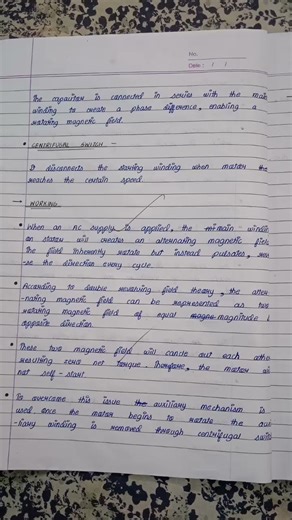 No.
Date : / /
The capacitor is connected in series with the main
winding to create a phase difference, enabling a
rotating magnetic field.
• CENTRIFUGAL SWITCH -
It disconnects the starting winding when motor the
reaches the certain speed.
→ WORKING
• When an AC supply is applied, the main-windin
on stator will creates an alternating magnetic fiel
The field inherently rotate but instead pulsates, rev
-se the direction every cycle.
• According to double revolving field theory, the alter
-nating magnetic field can be represented as two
rotating magnetic field of equal magn magnitude &
opposite direction.
• These two magnetic field will cancle out each othe
resulting zero net torque. Therefore, the motor is
not self-start.
• To overcome this issue the auxiliary mechanism is
used once the motor begins to rotate the aux
-iliary winding is removed through centrifugal switc